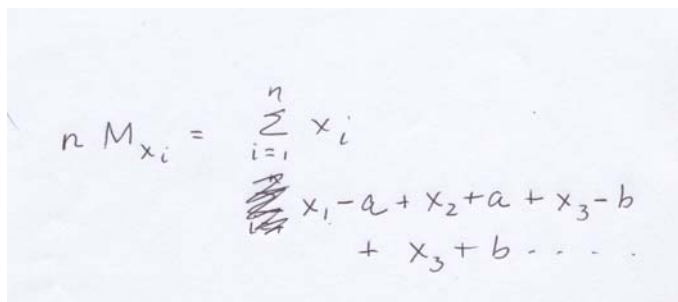 n M_{x_i} = \sum_{i=1}^{n} x_i
x_1 - a + x_2 + a + x_3 - b
+ x_3 + b - - - .